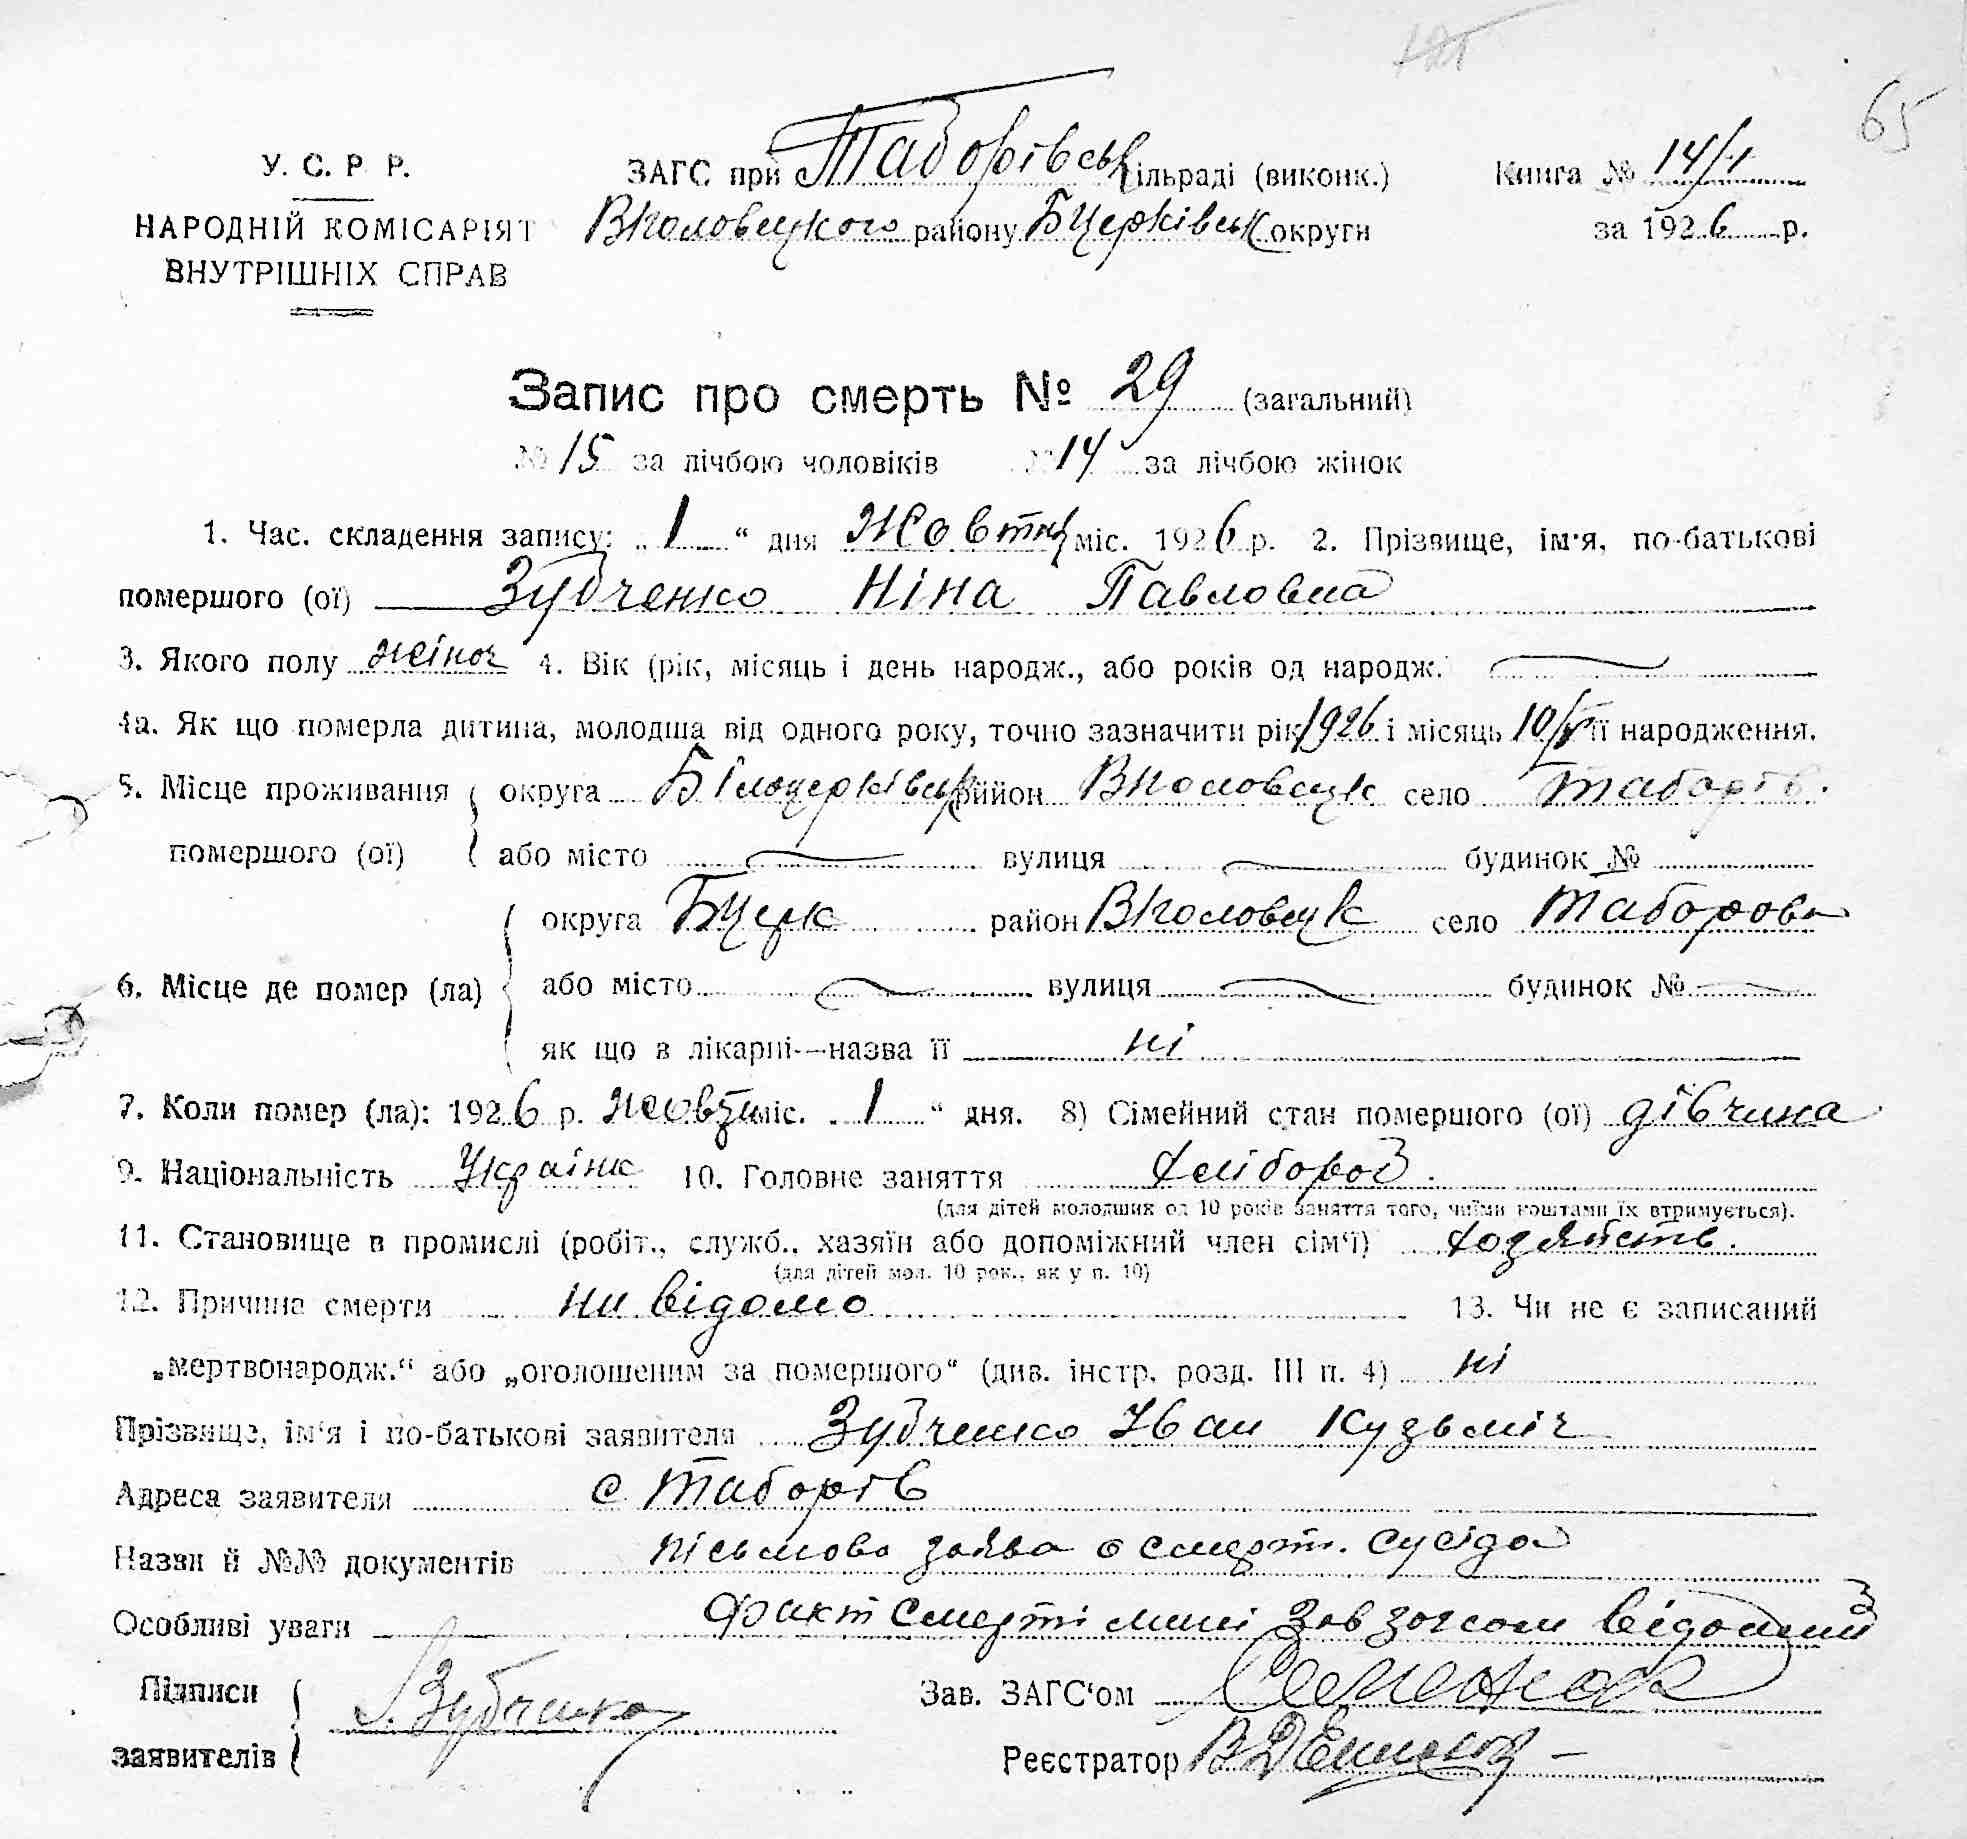 65
У. С. Р. Р.
НАРОДНІЙ КОМІСАРІЯТ
ВНУТРІШНІХ СПРАВ
ЗАГС при Таборівськ сільраді (виконк.)
Вполовецкого району Бцерківськ округи
Книга № 14/1
за 1926 р.
Запис про смерть № 29 (загальний)
№ 15 за лічбою чоловіків № 14 за лічбою жінок
1. Час. складення запису: „ 1 “ дня Жовтня міс. 1926 р. 2. Прізвище, ім'я, по-батькові
помершого (ої) Зубченко Ніна Павловна
3. Якого полу жіноч 4. Вік (рік, місяць і день народж., або років од народж.)
4а. Як що померла дитина, молодша від одного року, точно зазначити рік 1926 і місяць 10/V її народження.
5. Місце проживання помершого (ої) округа Білоцерківськ район Вполовецк село Таборів.
або місто вулиця будинок №
6. Місце де помер (ла) округа Бцерк район Вполовецк село Таборова
або місто вулиця будинок №
як що в лікарні—назва її ні
7. Коли помер (ла): 1926 р. жовтн міс. „ 1 “ дня. 8) Сімейний стан помершого (ої) дівчина
9. Національність Україник 10. Головне заняття хлібороб.
(для дітей молодших од 10 років заняття того, чиїми коштами їх втримується).
11. Становище в промислі (робіт., служб., хазяїн або допоміжний член сім'ї) хозяйств.
(для дітей мол. 10 рок., як у п. 10)
12. Причина смерти ни відомо 13. Чи не є записаний
„мертвонародж.“ або „оголошеним за помершого“ (див. інстр. розд. III п. 4) ні
Прізвище, ім'я і по-батькові заявителя Зубченко Іван Кузьміч
Адреса заявителя с Таборів
Назви й №№ документів пісьмова заява о смерт. сусіда
Особливі уваги Факт смерті мині зав загсом відомий
Підписи заявителів Зубченко
Зав. ЗАГС'ом
Реєстратор